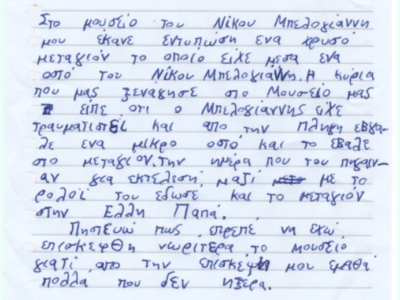 Στο μουσείο του Νίκου Μπελογιάννη
μου έκανε εντυπωση ενα χρυσο
μεταγιόν το οποίο είχε μεσα ενα
οστό του Νίκου Μπελογιαννη. Η κύρια
που μας ξεναγησε στο Μουσείο μας
είπε οτι ο Μπελογιάννης είχε
τραυματιστεί και απο την πληγη εβγα-
λε ενα μικρο οστό και το εβαλε
στο μεταγιον, την ημέρα που τον πηγαιν-
αν για εκτελεση, μαζί με το
ρολοϊ του εδωσε και το μεταγιόν
στην Ελλη Παπά.
Πηστευω πως επρεπε να εχω
επισκεφθη νωρίτερα το μουσείο
γιατί απο την επισκεψη μου εμαθα
πολλα που δεν ηξερα.